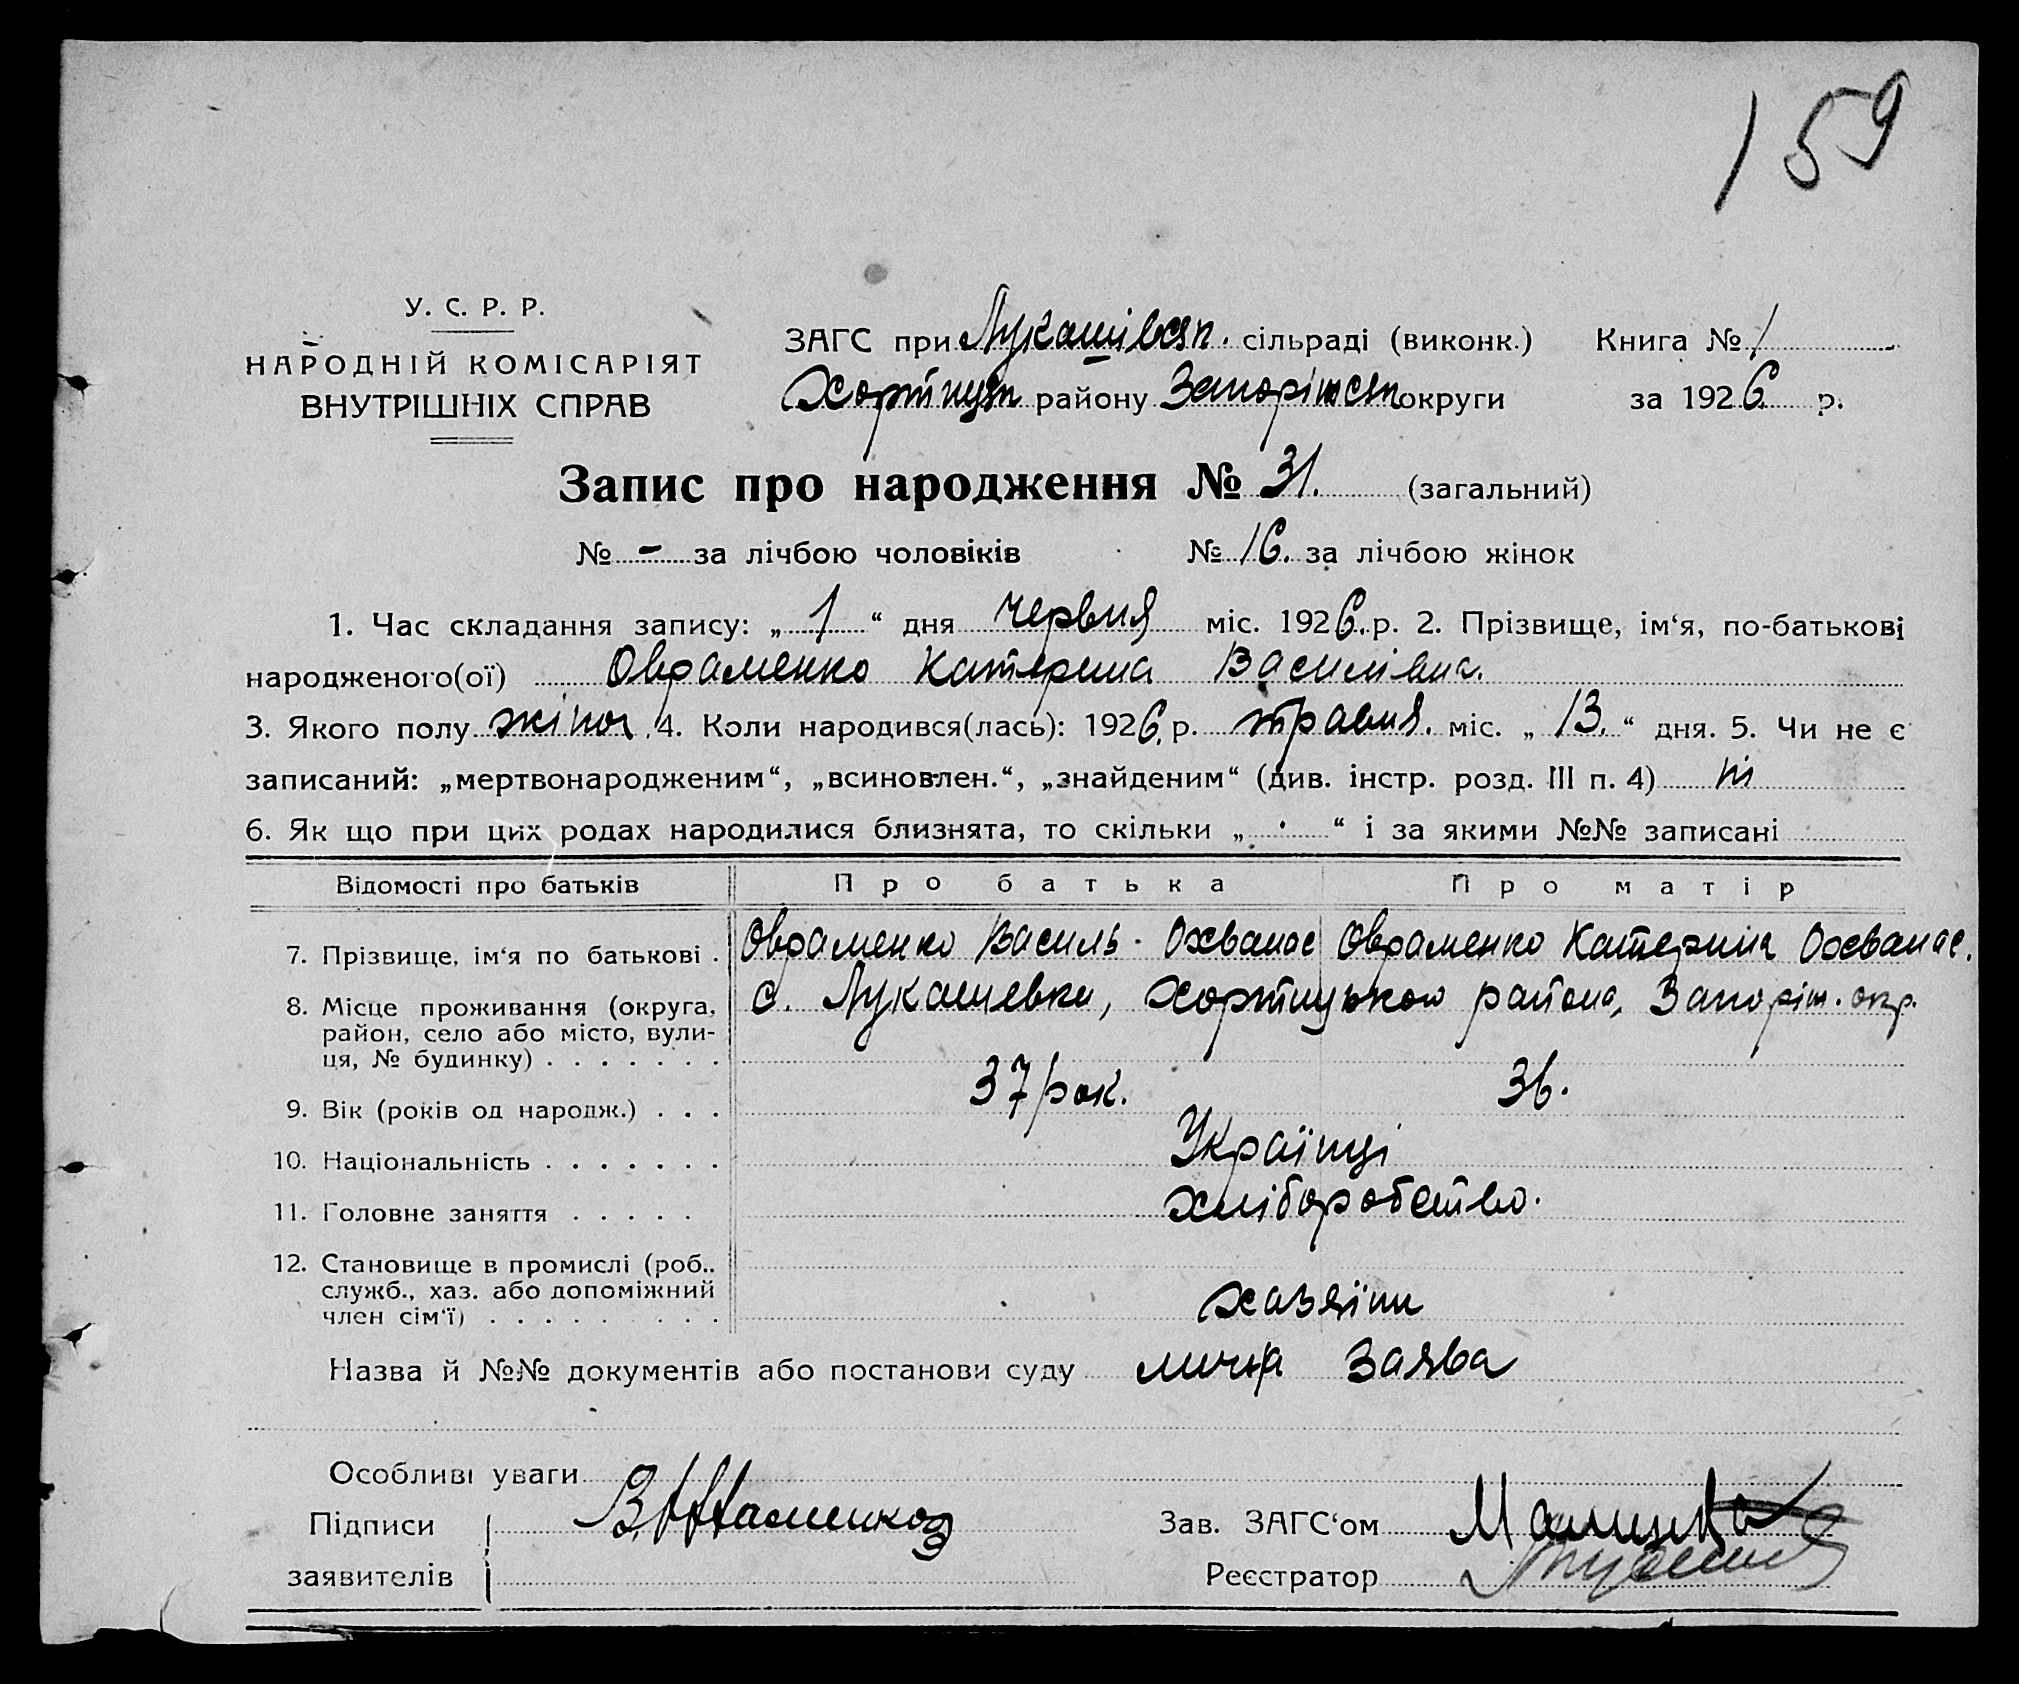 159
У. С. Р. Р.
НАРОДНІЙ КОМІСАРІЯТ
ВНУТРІШНІХ СПРАВ
ЗАГС при Лукашівськ. сільраді (виконк.) Книга № 1
Хортицьк району Запоріжськ округи за 1926 р.
Запис про народження № 31. (загальний)
№ - за лічбою чоловіків № 16. за лічбою жінок
1. Час складання запису: „ 1 “ дня червня міс. 1926. р. 2. Прізвище, ім‘я, по-батькові
народженого(ої) Овраменко Катерина Василівна.
3. Якого полу жіноч. 4. Коли народився(лась): 1926. р. травня. міс. „ 13. “ дня. 5. Чи не є
записаний: „мертвонародженим“, „всиновлен.“, „знайденим“ (див. інстр. розд. III п. 4) ні
6. Як що при цих родах народилися близнята, то скільки „ · “ і за якими №№ записані
Відомості про батьків Про батька Про матір
7. Прізвище, ім‘я по батькові . Овраменко Василь Охванас Овраменко Катерина Охванас.
8. Місце проживання (округа, с. Лукашевки, Хортицького района, Запоріж. окр.
район, село або місто, вули-
ця, № будинку) . . . . . . .
9. Вік (років од народж.) . . . 37 рок. 36.
10. Національність . . . . . . . Українці
11. Головне заняття . . . . . хліборобство.
12. Становище в промислі (роб..
служб., хаз. або допоміжний
член сім‘ї) . . . . . . . . . хазяїни
Назва й №№ документів або постанови суду лична заява
Особливі уваги
Підписи Зав. ЗАГС‘ом
заявителів Реєстратор